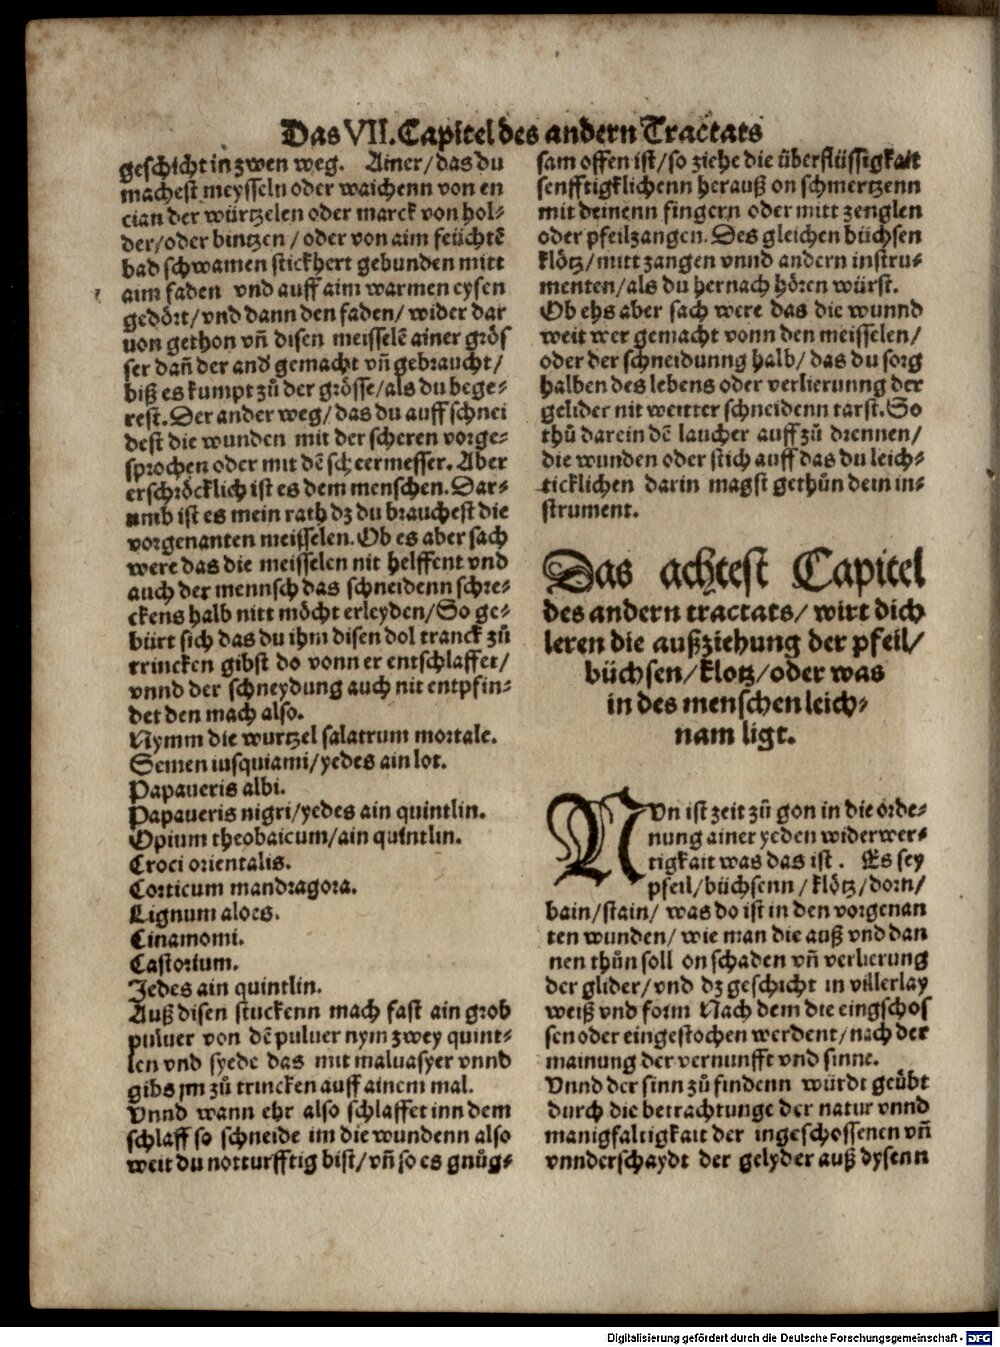 Das VII. Capitel des andern Tractats
geschicht in zwen weg. Ainer/ das du
machest meysseln oder waichenn von en
cian der würtzelen oder marck von hol⸗
der/oder bintzen / oder von aim feüchtē
bad schwamen stickhert gebunden mitt
aim faden vnd auff aim warmen eysen
gedört/ vnd dann den faden/ wider dar
uon gethon vñ disen meisselē ainer grös
ser dañ der and gemacht vñ gebraucht/
biß es kumpt zů der grösse/als du bege⸗
rest. Der ander weg/ das du auff schnei
dest die wunden mit der scheren vorge⸗
sprochen oder mit dē scheermesser. Aber
erschröcklich ist es dem menschen. Dar⸗
umb ist es mein rath dz du brauchest die
vorgenanten meisselen. Ob es aber sach
were das die meisselen nit helffent vnd
auch der mennsch das schneidenn schre⸗
ckens halb nitt möcht erleyden/ So ge⸗
bürt sich das du ihm disen dol tranck zů
trincken gibst do vonn er entschlaffet/
vnnd der schneydung auch nit entpfin⸗
det den mach also.
Nymm die wurtzel salatrum mortale.
Semen iusquiami/ yedes ain lot.
Papaueris albi.
Papaueris nigri/yedes ain quintlin.
Opium theobaicum/ain quintlin.
Croci orientalis.
Corticum mandragora.
Lignum aloes.
Cinamomi.
Castorium.
Jedes ain quintlin.
Auß disen stuckenn mach fast ain grob
puluer von dē puluer nym zwey quint⸗
len vnd syede das mit maluasyer vnnd
gibs jm zů trincken auff ainem mal.
Vnnd wann ehr also schlaffet inn dem
schlaff so schneide im die wundenn also
weit du notturfftig bist/ vñ so es gnůg⸗
sam offen ist/ so ziehe die überflüssigkait
senfftigklichenn herauß on schmertzenn
mit deinenn fingern oder mitt zenglen
oder pfeilzangen. Des gleichen büchsen
klötz/ mitt zangen vnnd andern instru⸗
menten/als du hernach hören würst.
Ob ehs aber sach were das die wunnd
weit wer gemacht vonn den meisselen/
oder der schneidunng halb/ das du sorg
halben des lebens oder verlierunng der
gelider nit weitter schneidenn tarst. So
thů darein dē laucher auff zů drennen/
die wunden oder stich auff das du leich⸗
ticklichen darin magst gethůn dein in⸗
strument.
Das achtest Capitel
des andern tractats/ wirt dich
leren die außziehung der pfeil/
büchsen/ klotz/ oder was
in des menschen leich⸗
nam ligt.
NVn ist zeit zů gon in die orde⸗
nung ainer yeden widerwer⸗
tigkait was das ist. Es sey
pfeil/ büchsenn / klötz/ dorn/
bain/stain/ was do ist in den vorgenan
ten wunden/ wie man die auß vnd dan
nen thůn soll on schaden vñ verlierung
der glider/ vnd dz geschicht in villerlay
weiß vnd form Nach dem die eingschos
sen oder eingestochen werdent/ nach der
mainung der vernunfft vnd sinne.
Vnnd der sinn zů findenn würdt geübt
durch die betrachtunge der natur vnnd
manigfaltigkait der ingeschossenen vñ
vnnderschaydt der gelyder auß dysenn
Digitalisierung gefördert durch die Deutsche Forschungsgemeinschaft - DFG